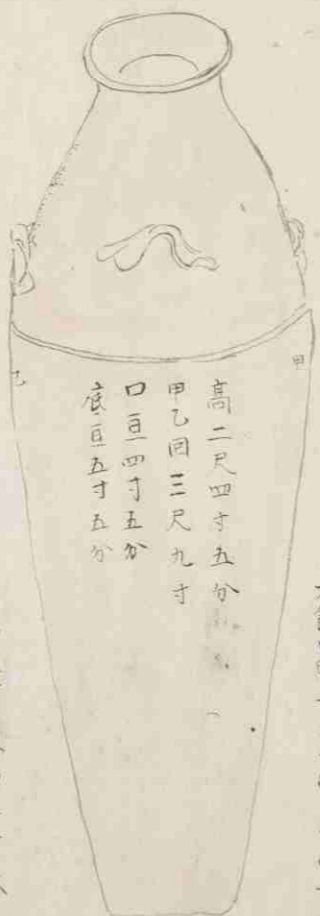 高二尺四寸五分
甲乙囘三尺九寸
口亘四寸五分
底亘五寸五分
甲
乙